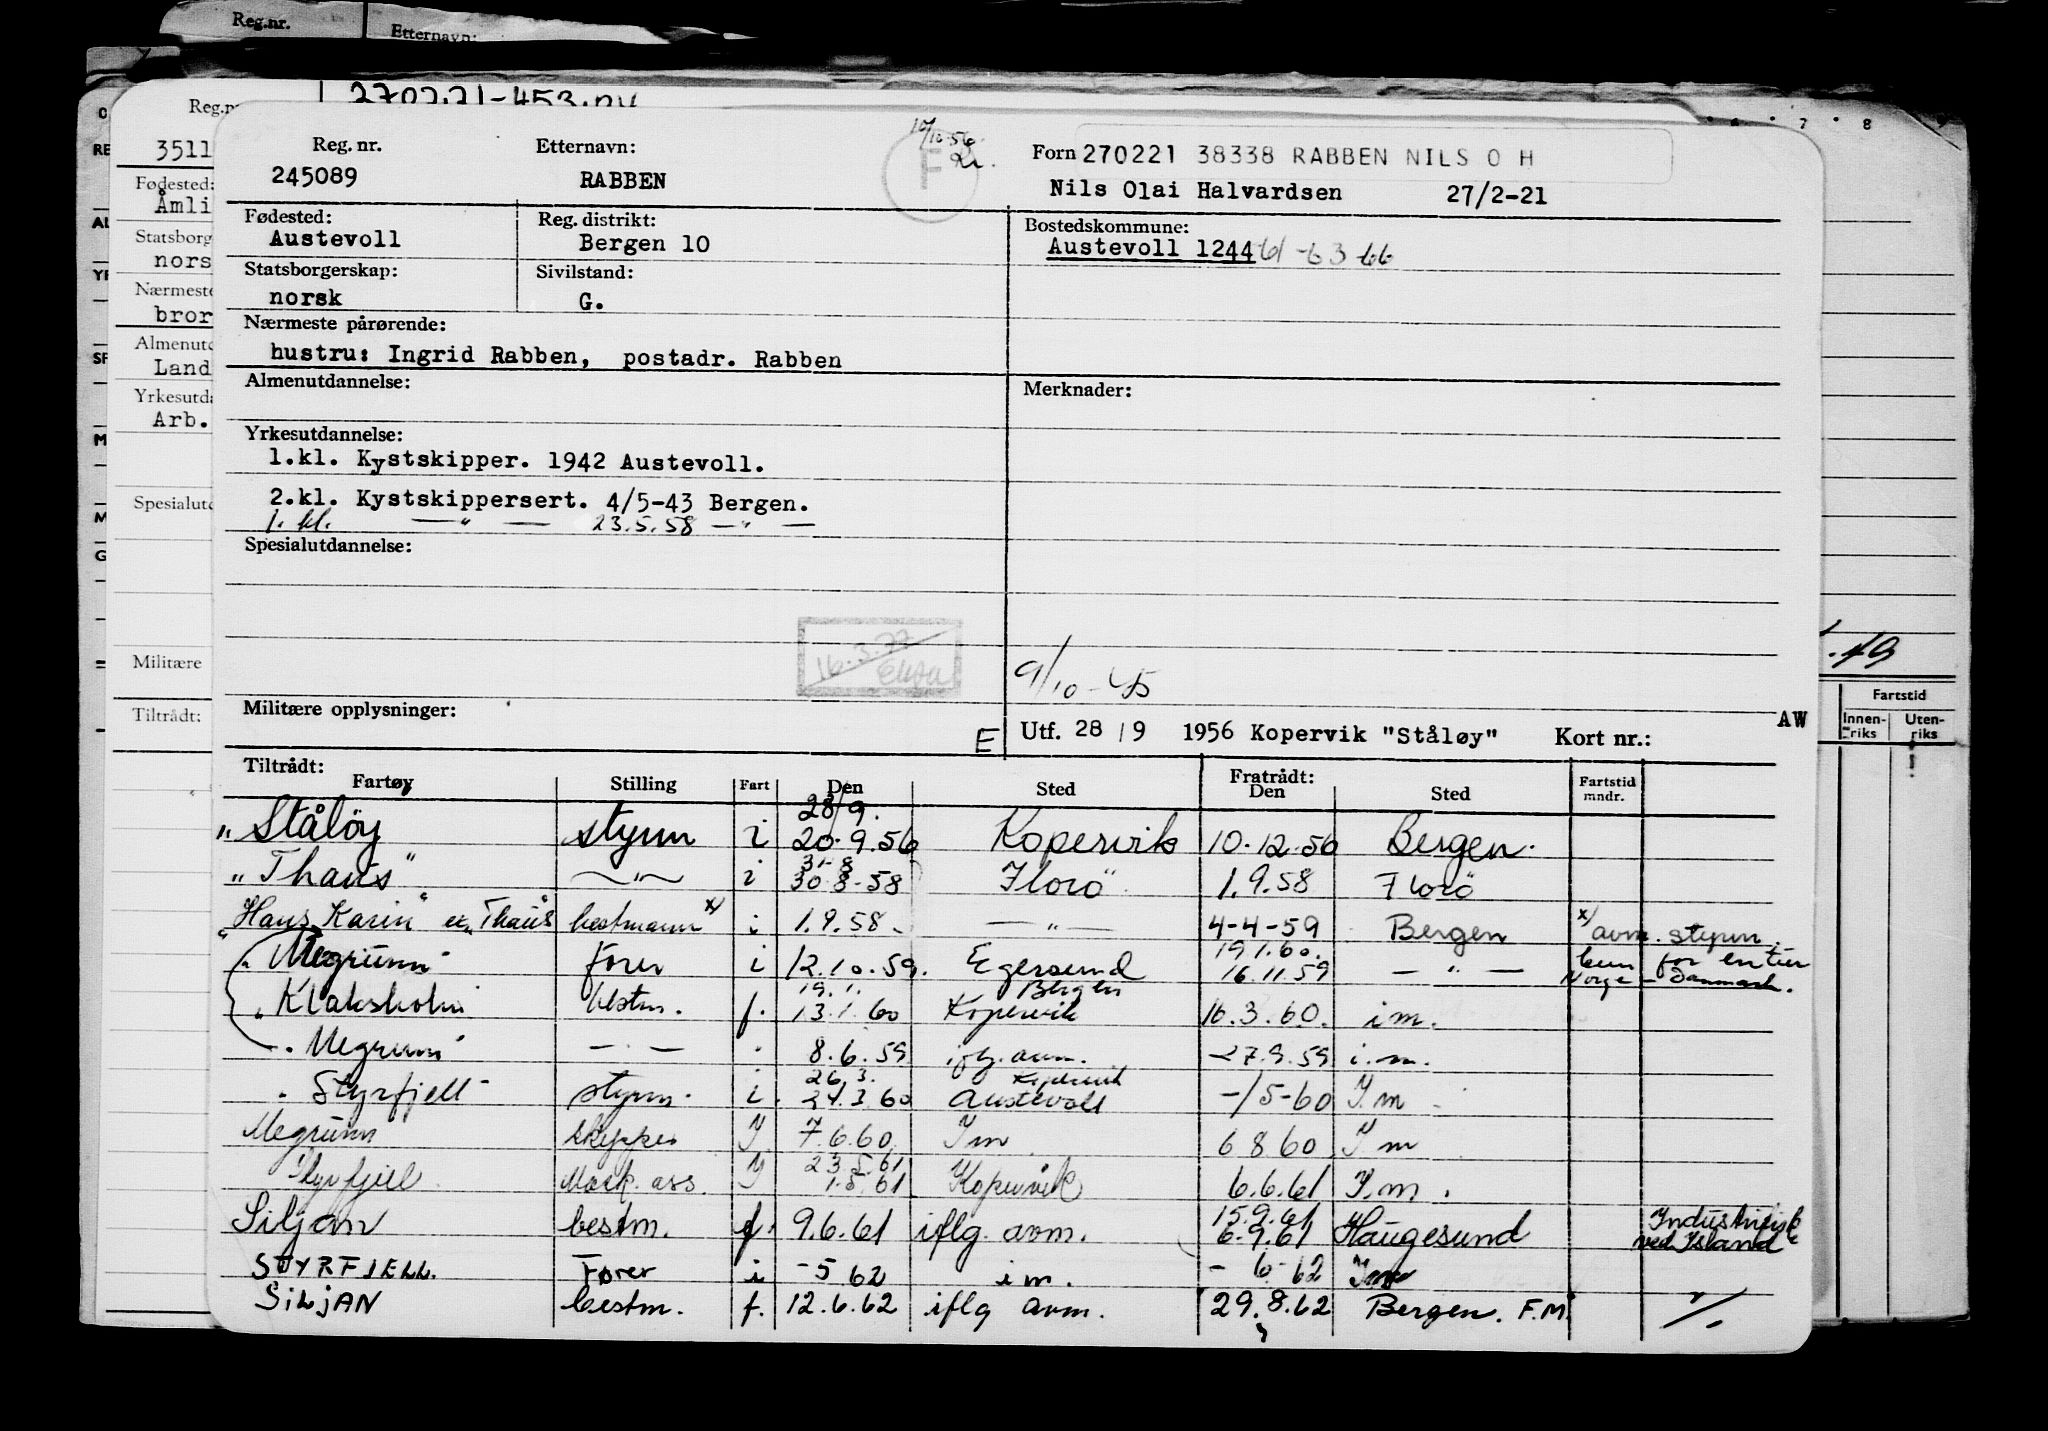 Reg.nr. Etternavn:
270221-453
Reg.nr. 3511
Fødested: Åmli
Statsborg nors
Nærmeste bror
Almenutd Land
Yrkesutda Arb.
Spesialutd
Militære
Tiltrådt:
6 7 8
.49
Fartstid
Innenriks Utenriks
10/10-56
F
Reg. nr. Etternavn: Forn 270221 38338 RABBEN NILS O H
245089 RABBEN Nils Olai Halvardsen 27/2-21
Fødested: Reg. distrikt: Bostedskommune:
Austevoll Bergen 10 Austevoll 1244 61-63 66
Statsborgerskap: Sivilstand:
norsk G.
Nærmeste pårørende:
hustru: Ingrid Rabben, postadr. Rabben
Almenutdannelse: Merknader:
Yrkesutdannelse:
1.kl. Kystskipper. 1942 Austevoll.
2.kl. Kystskippersert. 4/5-43 Bergen.
1. kl. — " — 23.5.58 — " —
Spesialutdannelse:
16.3.77
9/10-45
Militære opplysninger:
AW
E Utf. 28/9 1956 Kopervik "Ståløy" Kort nr.:
Tiltrådt: Fratrådt:
Fartøy Stilling Fart Den Sted Den Sted Fartstid mndr.
28/9.
"Ståløy styrm i 20.9.56 Kopervik 10.12.56 Bergen.
31-8
"Thaus" — " — i 30.8-58 Florö 1.9.58 Florö
"Hans Karin" ex "Thaus" bestmann x) i 1.9.58 — " — 4-4-59 Bergen x) avm. styrm
19.1.60. kun for en tur
"Megrunn" fører i 12.10.59. Egersund 16.11.59 — " — Norge - Danmark.
19.1. Bergen
"Klaksholm bestm. f. 13.1.60 Kopervik 16.3.60. i m.
"Megrunn" — " — " 8.6.59 iflg. avm. 27.9.59 i.m.
26.3. Kopervik
"Styrfjell" styrm. i. 24.3.60 Austevoll -/5-60 I m
Megrunn skipper I 7.6.60 I m 6 8 60 I m
23.5.61
Styrfjell Mask. ass. I 1.5.61 Kopervik 6.6.61 I.m.
15.9.61 Industrifisk
Siljan bestm. f. 9.6.61 iflg. avm. 6.9.61 Haugesund ved Island
STYRFJELL. Fører i -5 62 i m. - 6-62 Im
SiljAN bestm. f. 12.6.62 iflg avm. 29.8.62 Bergen. F.M. "/.